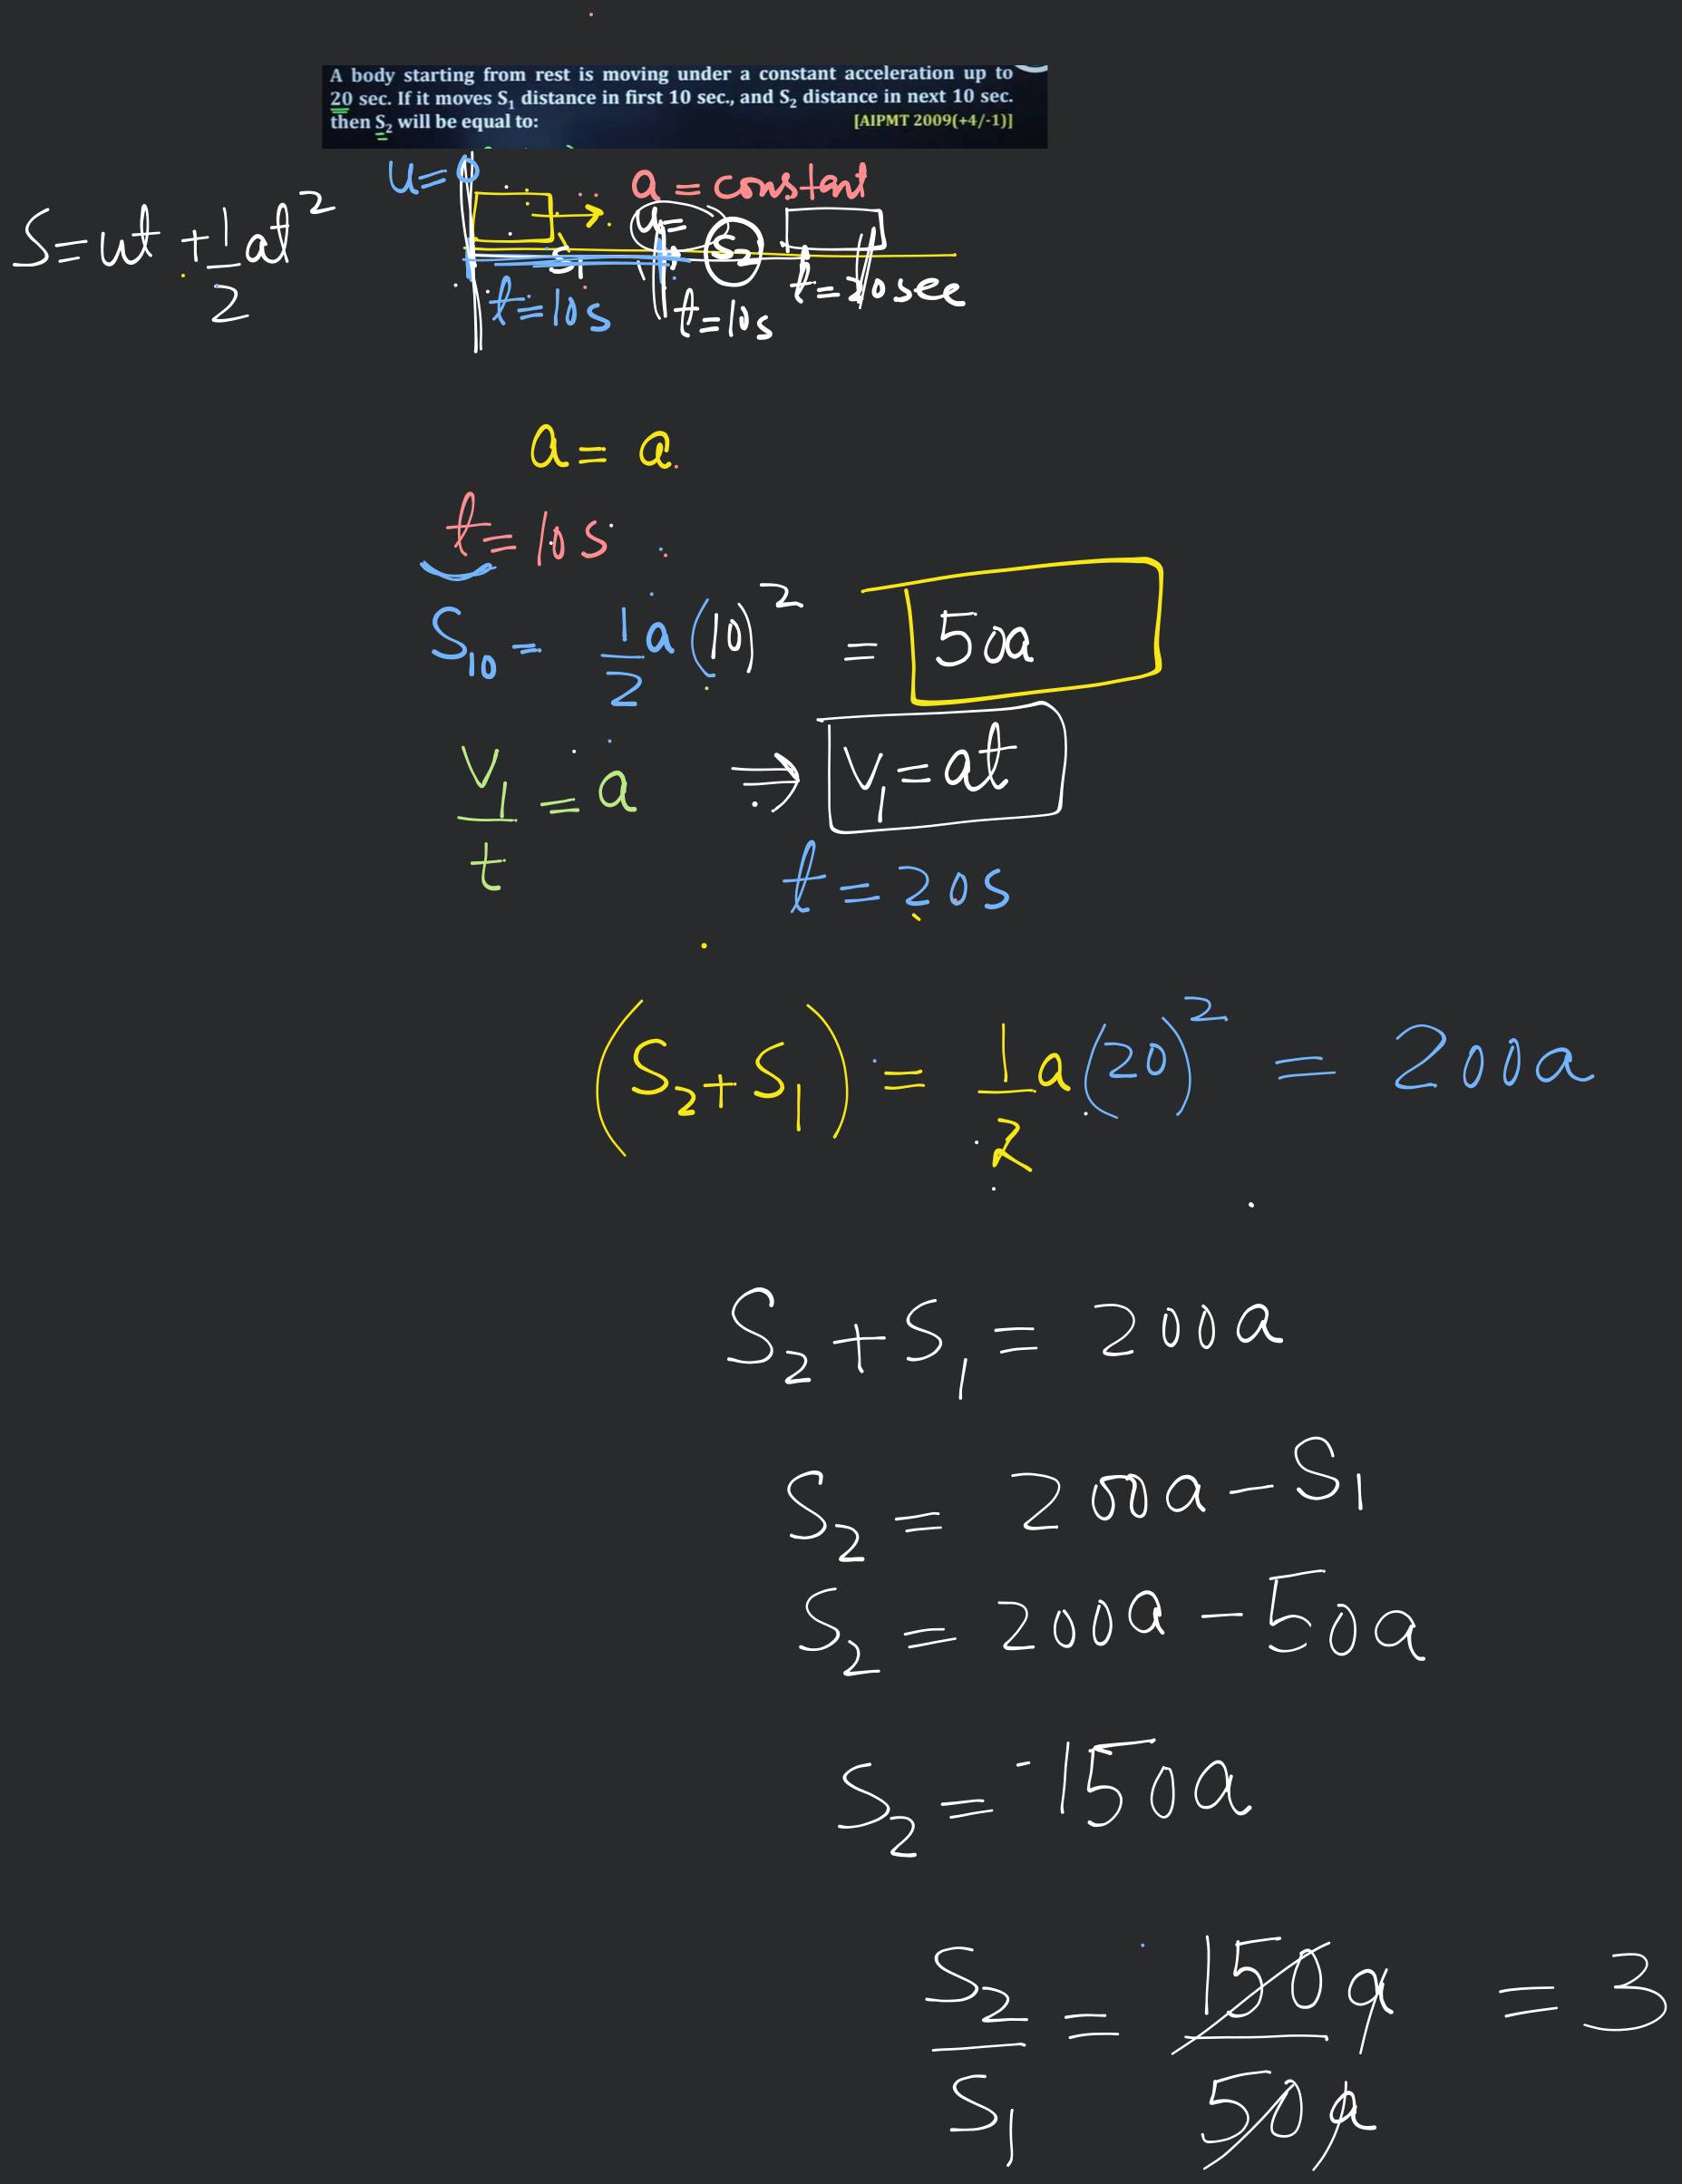 A body starting from rest is moving under a constant acceleration up to
20 sec. If it moves S₁ distance in first 10 sec., and S₂ distance in next 10 sec.
then S₂ will be equal to: [AIPMT 2009(+4/-1)]
u=0 a = constant
S=ut+1/2at² S₁ u= S₂
t=10s t=10s t=20sec
a= a
t=10s
S₁₀= 1/2a(10)² = 50a
V₁/t=a ⇒ V₁=at
t=20s
(S₂+S₁)= 1/2a(20)² = 200a
S₂+S₁=200a
S₂= 200a-S₁
S₂=200a-50a
S₂=150a
S₂/S₁= 150a/50a =3